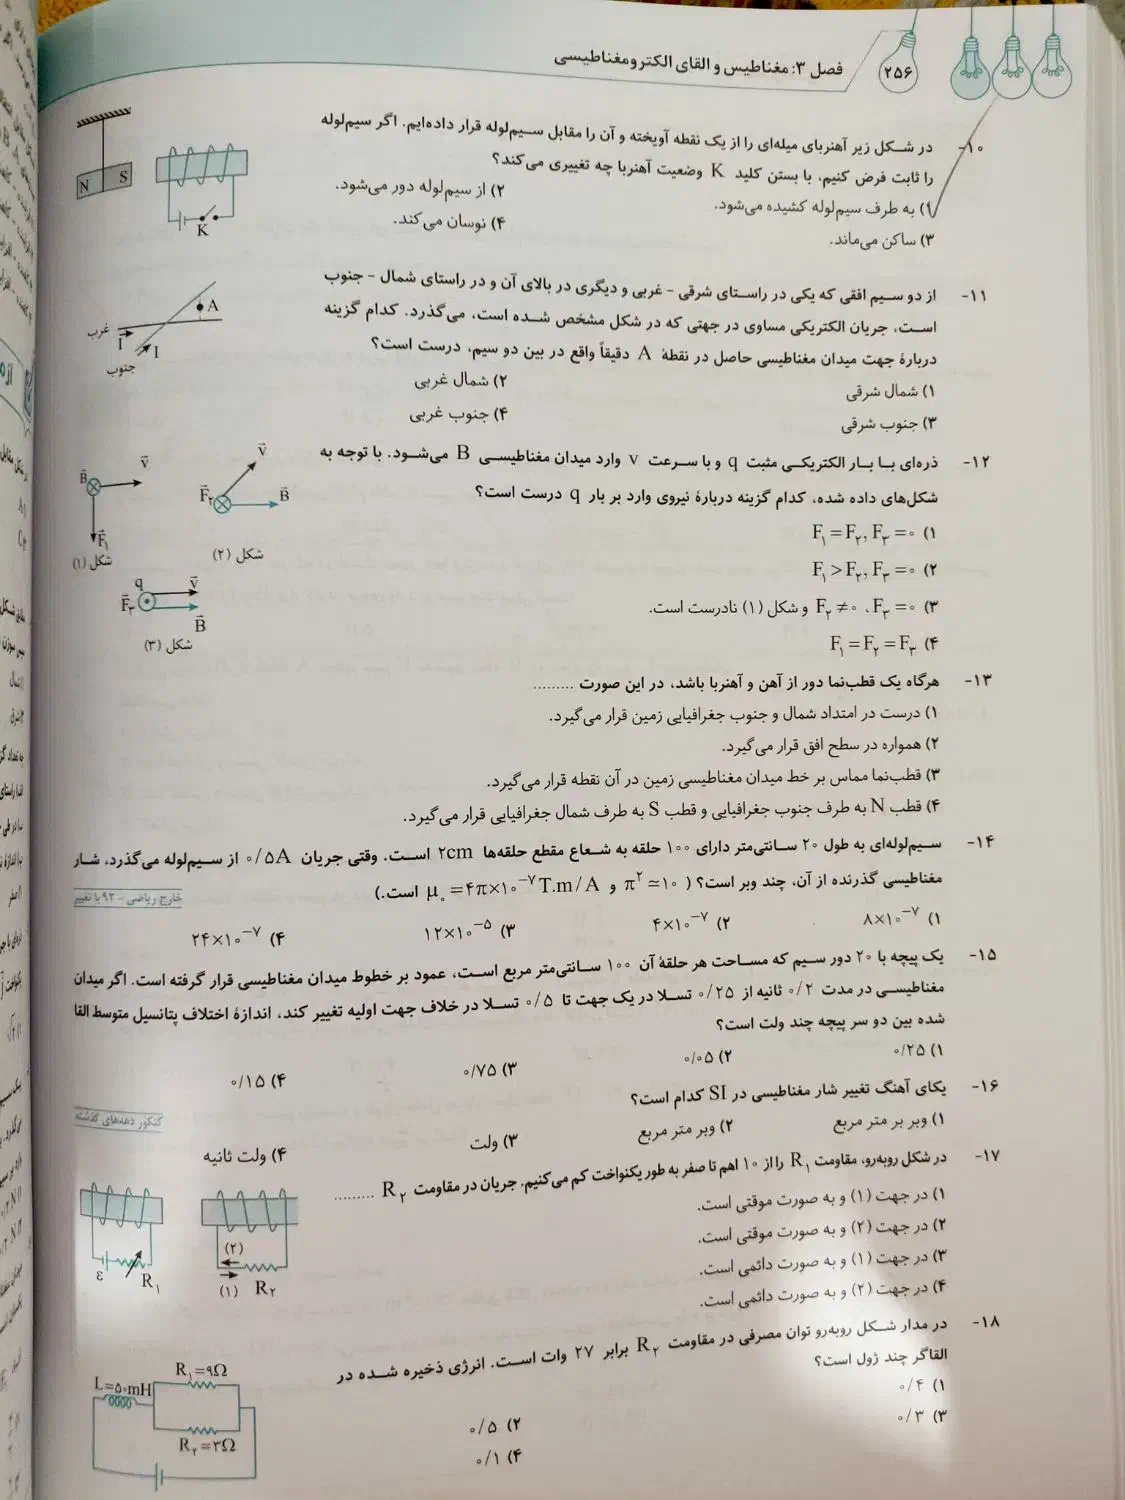 فصل ۳: مغناطیس و القای الکترومغناطیسی
۲۵۶
۱۰- در شکل زیر آهنربای میله‌ای را از یک نقطه آویخته و آن را مقابل سیم‌لوله قرار داده‌ایم. اگر سیم‌لوله
را ثابت فرض کنیم، با بستن کلید K وضعیت آهنربا چه تغییری می‌کند؟
۱) به طرف سیم‌لوله کشیده می‌شود.
۲) از سیم‌لوله دور می‌شود.
۳) ساکن می‌ماند.
۴) نوسان می‌کند.
N S
K
۱۱- از دو سیم افقی که یکی در راستای شرقی - غربی و دیگری در بالای آن و در راستای شمال - جنوب
است، جریان الکتریکی مساوی در جهتی که در شکل مشخص شده است، می‌گذرد. کدام گزینه
دربارهٔ جهت میدان مغناطیسی حاصل در نقطهٔ A دقیقاً واقع در بین دو سیم، درست است؟
۱) شمال شرقی
۲) شمال غربی
۳) جنوب شرقی
۴) جنوب غربی
A
غرب
I
I
جنوب
۱۲- ذره‌ای با بار الکتریکی مثبت q و با سرعت v وارد میدان مغناطیسی B می‌شود. با توجه به
شکل‌های داده شده، کدام گزینه دربارهٔ نیروی وارد بر بار q درست است؟
۱) F₁ = F₂, F₃ = ۰
۲) F₁ > F₂, F₃ = ۰
۳) F₂ ≠ ۰ ، F₃ = ۰ و شکل (۱) نادرست است.
۴) F₁ = F₂ = F₃
B⃗ v⃗
F⃗₁
شکل (۱)
v⃗
F⃗₂ B⃗
شکل (۲)
q v⃗
F⃗₃
B⃗
شکل (۳)
۱۳- هرگاه یک قطب‌نما دور از آهن و آهنربا باشد، در این صورت .........
۱) درست در امتداد شمال و جنوب جغرافیایی زمین قرار می‌گیرد.
۲) همواره در سطح افق قرار می‌گیرد.
۳) قطب‌نما مماس بر خط میدان مغناطیسی زمین در آن نقطه قرار می‌گیرد.
۴) قطب N به طرف جنوب جغرافیایی و قطب S به طرف شمال جغرافیایی قرار می‌گیرد.
۱۴- سیم‌لوله‌ای به طول ۲۰ سانتی‌متر دارای ۱۰۰ حلقه به شعاع مقطع حلقه‌ها ۲cm است. وقتی جریان ۰/۵A از سیم‌لوله می‌گذرد، شار
مغناطیسی گذرنده از آن، چند وبر است؟ (π² ≃ ۱۰ و μ₀ = ۴π×۱۰⁻⁷ T.m/A است.)
خارج ریاضی - ۹۲ با تغییر
۱) ۸×۱۰⁻⁷
۲) ۴×۱۰⁻⁷
۳) ۱۲×۱۰⁻⁵
۴) ۲۴×۱۰⁻⁷
۱۵- یک پیچه با ۲۰ دور سیم که مساحت هر حلقهٔ آن ۱۰۰ سانتی‌متر مربع است، عمود بر خطوط میدان مغناطیسی قرار گرفته است. اگر میدان
مغناطیسی در مدت ۰/۲ ثانیه از ۰/۲۵ تسلا در یک جهت تا ۰/۵ تسلا در خلاف جهت اولیه تغییر کند، اندازهٔ اختلاف پتانسیل متوسط القا
شده بین دو سر پیچه چند ولت است؟
۱) ۰/۲۵
۲) ۰/۰۵
۳) ۰/۷۵
۴) ۰/۱۵
۱۶- یکای آهنگ تغییر شار مغناطیسی در SI کدام است؟
کنکور دهه‌های گذشته
۱) وبر بر متر مربع
۲) وبر متر مربع
۳) ولت
۴) ولت ثانیه
۱۷- در شکل روبه‌رو، مقاومت R₁ را از ۱۰ اهم تا صفر به طور یکنواخت کم می‌کنیم. جریان در مقاومت R₂ .........
۱) در جهت (۱) و به صورت موقتی است.
۲) در جهت (۲) و به صورت موقتی است.
۳) در جهت (۱) و به صورت دائمی است.
۴) در جهت (۲) و به صورت دائمی است.
ε R₁
(۲)
(۱) R₂
۱۸- در مدار شکل روبه‌رو توان مصرفی در مقاومت R₂ برابر ۲۷ وات است. انرژی ذخیره شده در
القاگر چند ژول است؟
۱) ۰/۴
۲) ۰/۵
۳) ۰/۳
۴) ۰/۱
R₁=۹Ω
L=۵۰mH
R₂=۳Ω